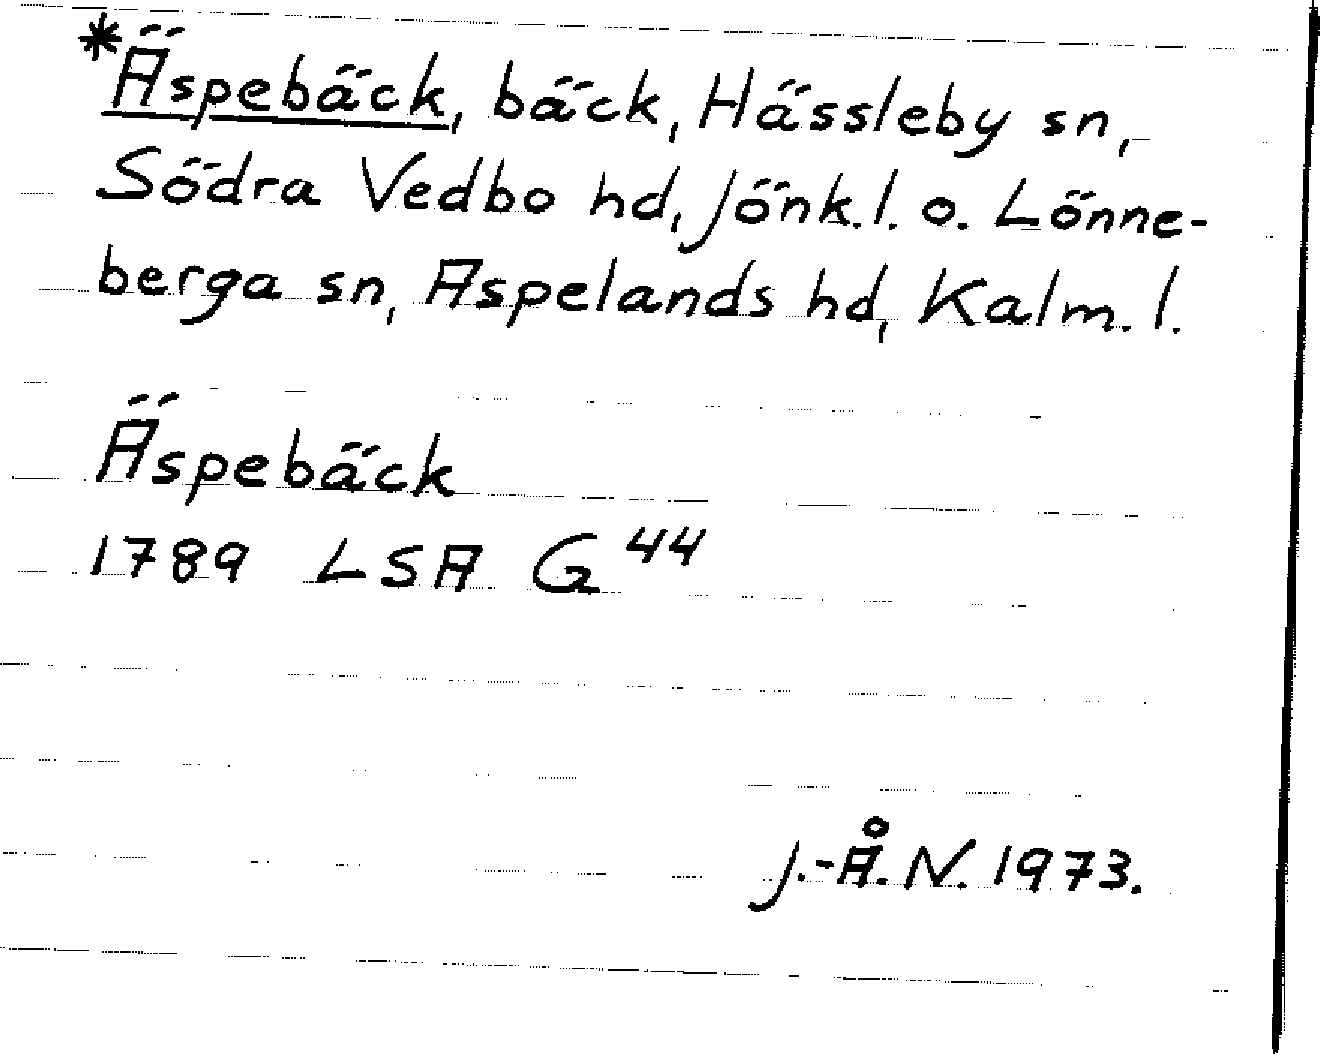 *Äspebäck, bäck, Hässleby sn,
Södra Vedbo hd, Jönk. l. o. Lönne-
berga sn, Aspelands hd, Kalm. l.
Äspebäck
1789 LSA G 44
J.-Å. N. 1973.